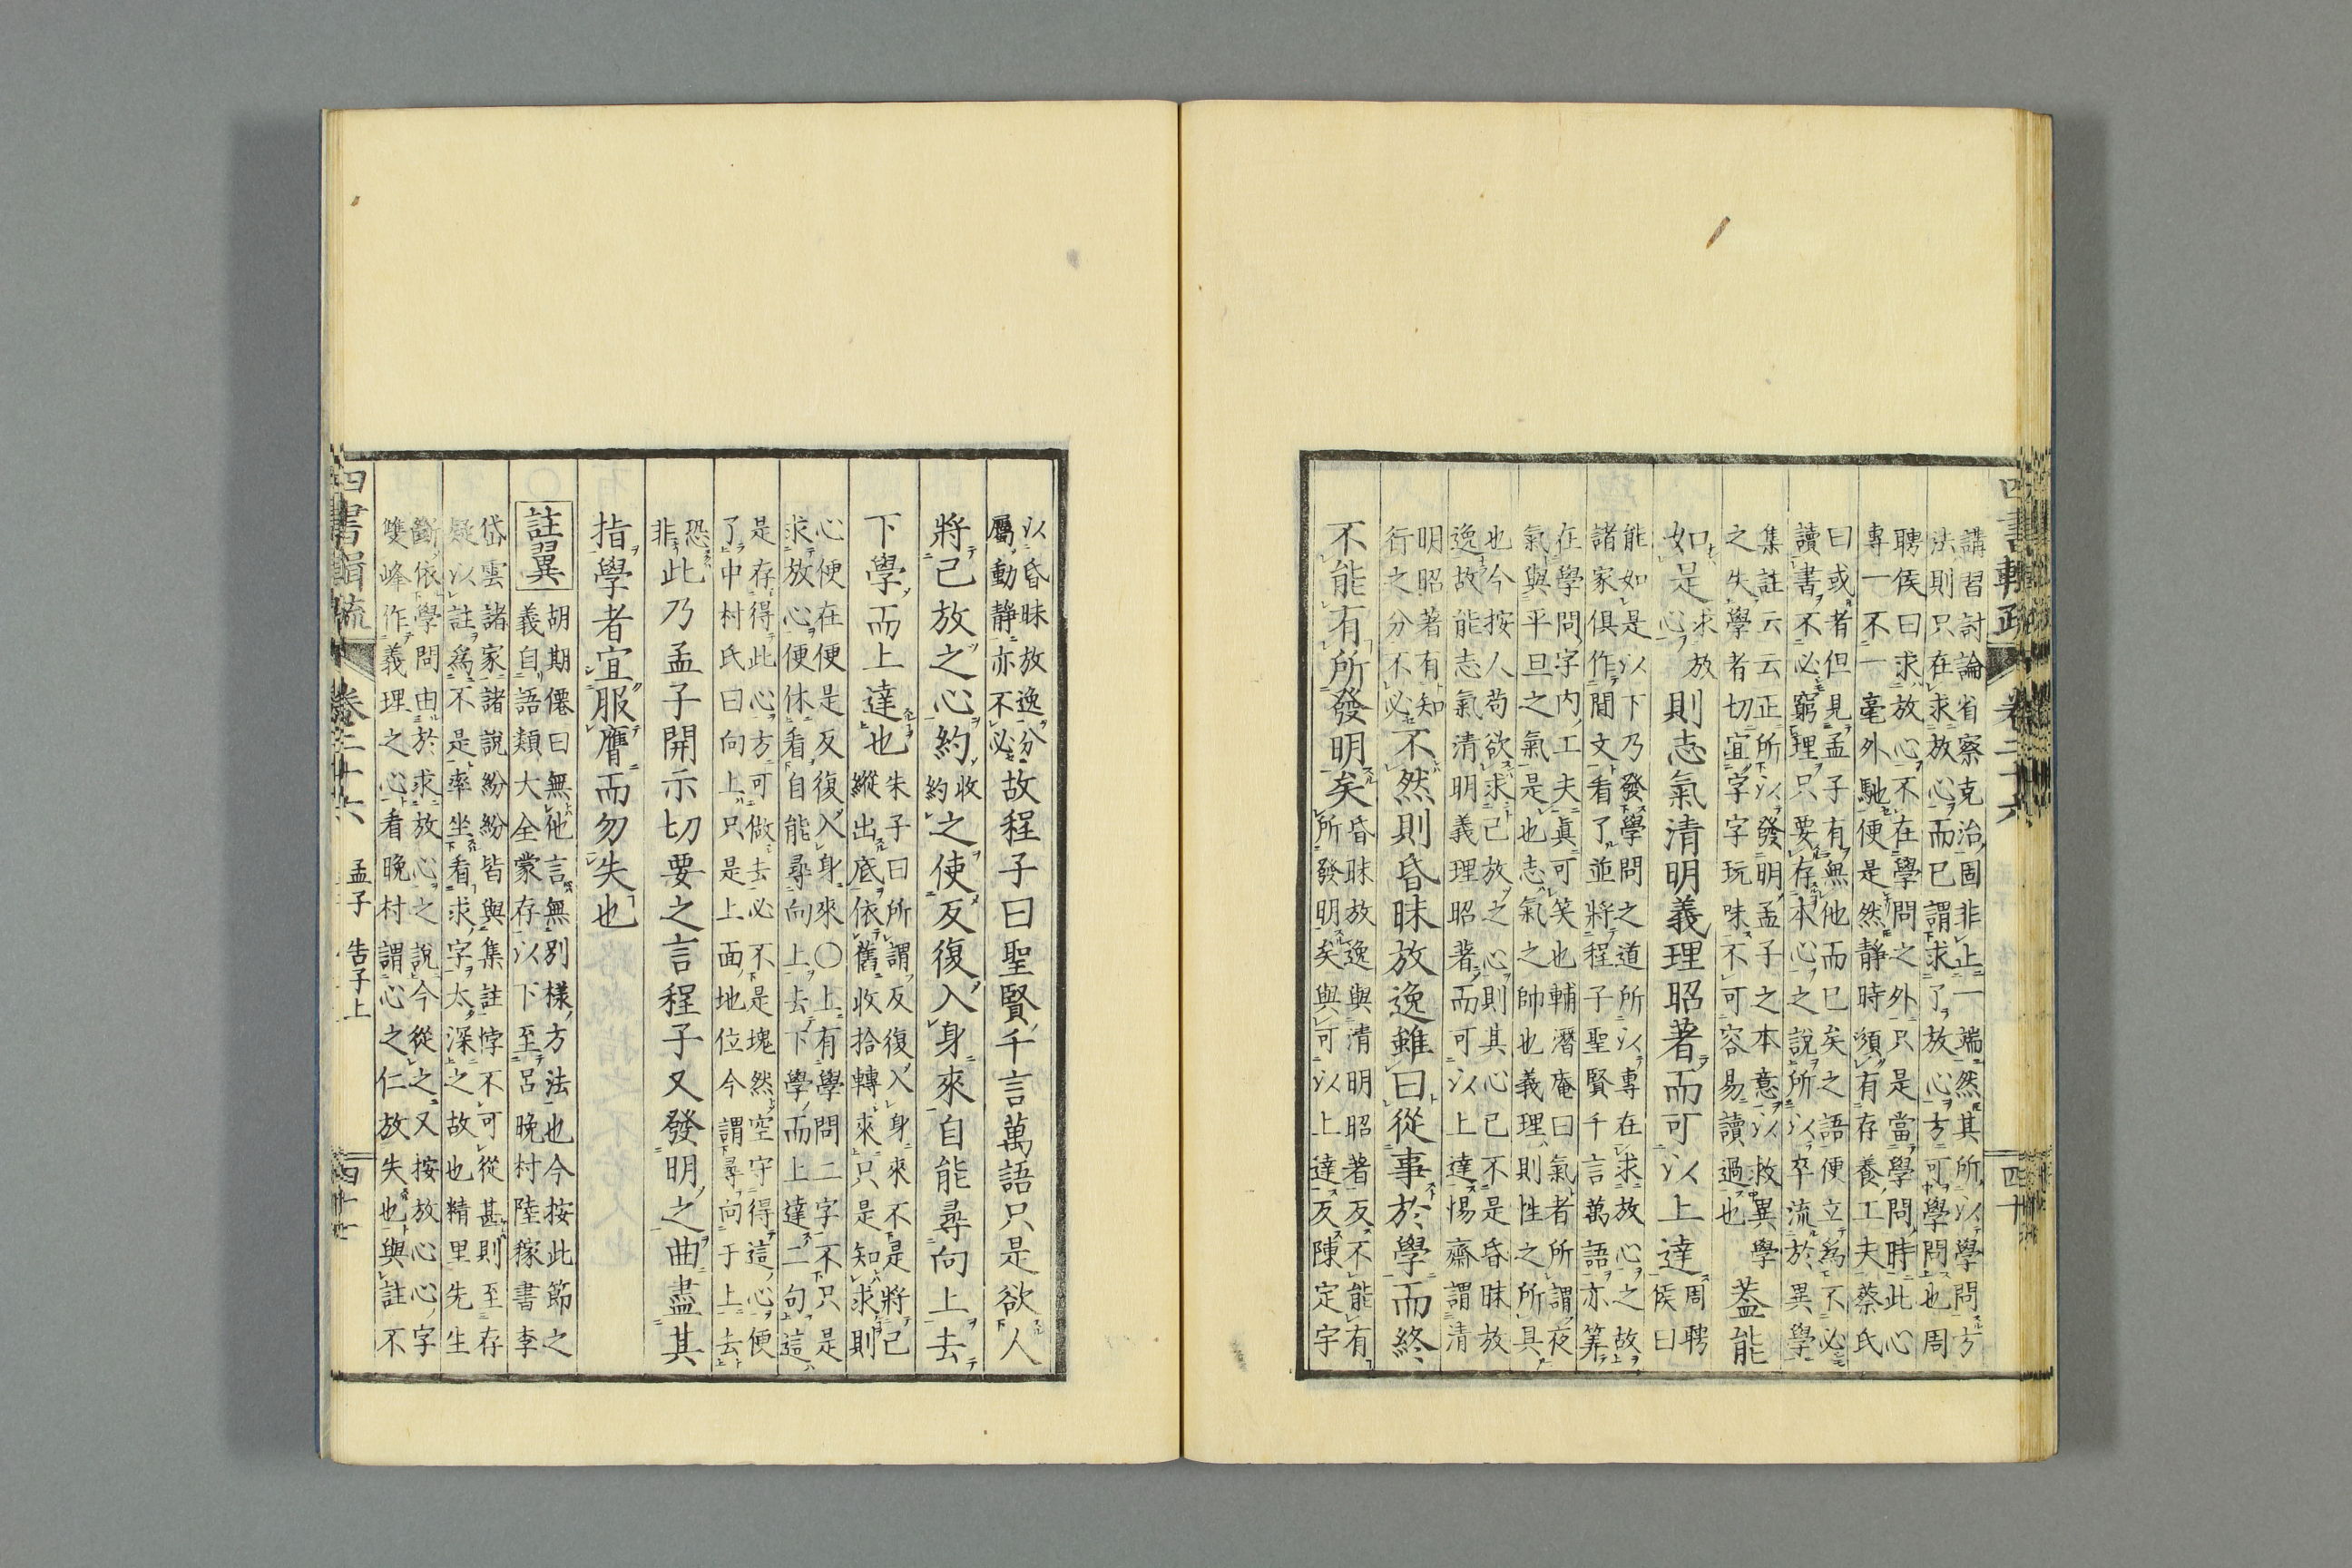 四書輯疏 卷二十六 四十
講習討論省察克治固非止一端然其所以學問方
法則只在求放心而已謂求了放心方可學問也周
聘侯曰求放心不在學問之外只是當學問時此心
專一不一毫外馳便是然靜時須有存養工夫蔡氏
曰或者但見孟子有無他而已矣之語便立為不必
讀書不必窮理只要存本心之說所以卒流於異學
集註云云正所以發明孟子之本意以救異學
之失學者切宜字字玩味不可容易讀過也
蓋能
如是
求放
心
則志氣清明義理昭著而可以上達
周聘
侯曰
能如是以下乃發學問之道所以專在求放心之故
諸家俱作閒文看了並將程子聖賢千言萬語亦筭
在學問字內工夫眞可笑也輔潛庵曰氣者所謂夜
氣與平旦之氣是也志氣之帥也義理則性之所具
也今按人苟欲求己放之心則其心已不是昏昧放
逸故能志氣清明義理昭著而可以上達惕齋謂清
明昭著有知
行之分不必
不然則昏昧放逸雖曰從事於學而終
不能有所發明矣
昏昧放逸與清明昭著反不能有
所發明矣與可以上達反陳定宇
以昏昧放逸分
屬動靜亦不必
故程子曰聖賢千言萬語只是欲人
將己放之心約
收
約
之使反復入身來自能尋向上去
下學而上達也
朱子曰所謂反復入身來不是將己
縱出底依舊收拾轉來只是知求則
心便在便是反復入身來〇上有學問二字不只是
求放心便休看自能尋向上去下學而上達二句這
是存得此心方可做去必不是塊然空守得這心便
了中村氏曰向上只是上面地位今謂尋向于上去
恐
非
此乃孟子開示切要之言程子又發明之曲盡其
指學者宜服膺而勿失也
註翼
胡期僊曰無他言無別樣方法也今按此節之
義自語類大全蒙存以下至呂晚村陸稼書李
岱雲諸家諸說紛紛皆與集註悖不可從甚則至存
疑以註為不是率坐看求字太深之故也精里先生
斷依學問由於求放心之說今從之又按放心心字
雙峰作義理之心看晚村謂心之仁放失也與註不
四書輯疏 卷二十六 孟子 告子上 四十一